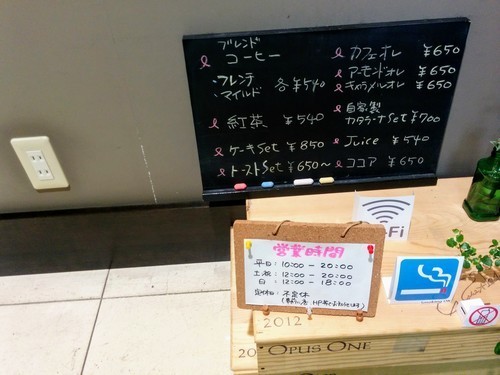 ブレンド
コーヒー
・フレンチ
・マイルド 各¥540
紅茶 ¥540
ケーキSet ¥850
トーストSet ¥650〜
カフェオレ ¥650
アーモンドオレ ¥650
キャラメルオレ ¥650
自家製
カタラーナSet ¥700
Juice ¥540
ココア ¥650
Fi
営業時間
平日:10:00 - 20:00
土祝:12:00 - 20:00
日:12:00 - 18:00
定休日:不定休
2012
20
OPUS ONE